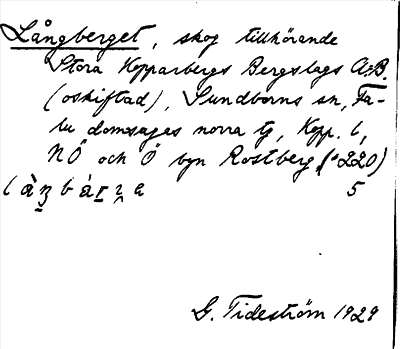 Långberget, skog tillhörande
Stora Kopparbergs Bergslags A.-B.
(oskiftad), Sundborns sn, Fa-
lu domsagas norra tg, Kopp. l,
NÖ och Ö byn Rostberg (220)
5
G. Tideström 1929